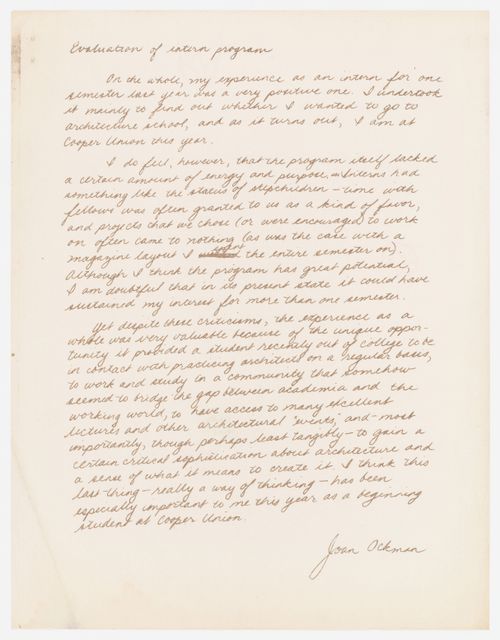 Evaluation of intern program
On the whole, my experience as an intern for one
semester last year was a very positive one. I undertook
it mainly to find out whether I wanted to go to
architecture school, and as it turns out, I am at
Cooper Union this year.
I do feel, however, that the program itself lacked
a certain amount of energy and purpose. Interns had
something like the status of stepchildren — time with
fellows was often granted to us as a kind of favor,
and projects that we chose (or were encouraged) to work
on often came to nothing (as was the case with a
magazine layout I the entire semester on).
Although I think the program has great potential,
I am doubtful that in its present state it could have
sustained my interest for more than one semester.
Yet despite these criticisms, the experience as a
whole was very valuable because of the unique oppor-
tunity it provided a student recently out of college to be
in contact with practicing architects on a regular basis,
to work and study in a community that somehow
seemed to bridge the gap between academia and the
working world, to have access to many excellent
lectures and other architectural "events," and — most
importantly, though perhaps least tangibly — to gain a
certain critical sophistication about architecture and
a sense of what it means to create it. I think this
last thing — really a way of thinking — has been
especially important to me this year as a beginning
student at Cooper Union.
Joan Ockman